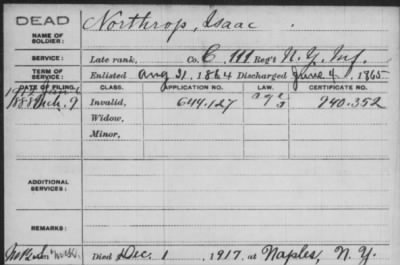 DEAD
NAME OF SOLDIER:
Northrop, Isaac
SERVICE: Late rank, Co. C, 111 Reg't N.Y. Inf.
TERM OF SERVICE: Enlisted Aug 31, 1864 Discharged June 4, 1865
DATE OF FILING. CLASS. APPLICATION NO. LAW. CERTIFICATE NO.
1888 Feb. 9 Invalid, 644.127 940.352
Widow,
Minor,
ADDITIONAL SERVICES:
REMARKS:
Died Dec. 1, 1917, at Naples, N.Y.